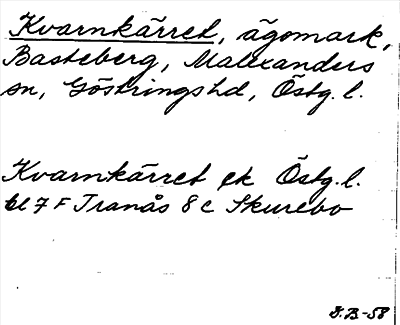 Kvarnkärret, ägomark,
Basteberg, Malexanders
sn, Göstrings hd, Östg. l.
Kvarnkärret ek Östg. l.
bl 7 F Tranås 8 c Skurebo
B.-58